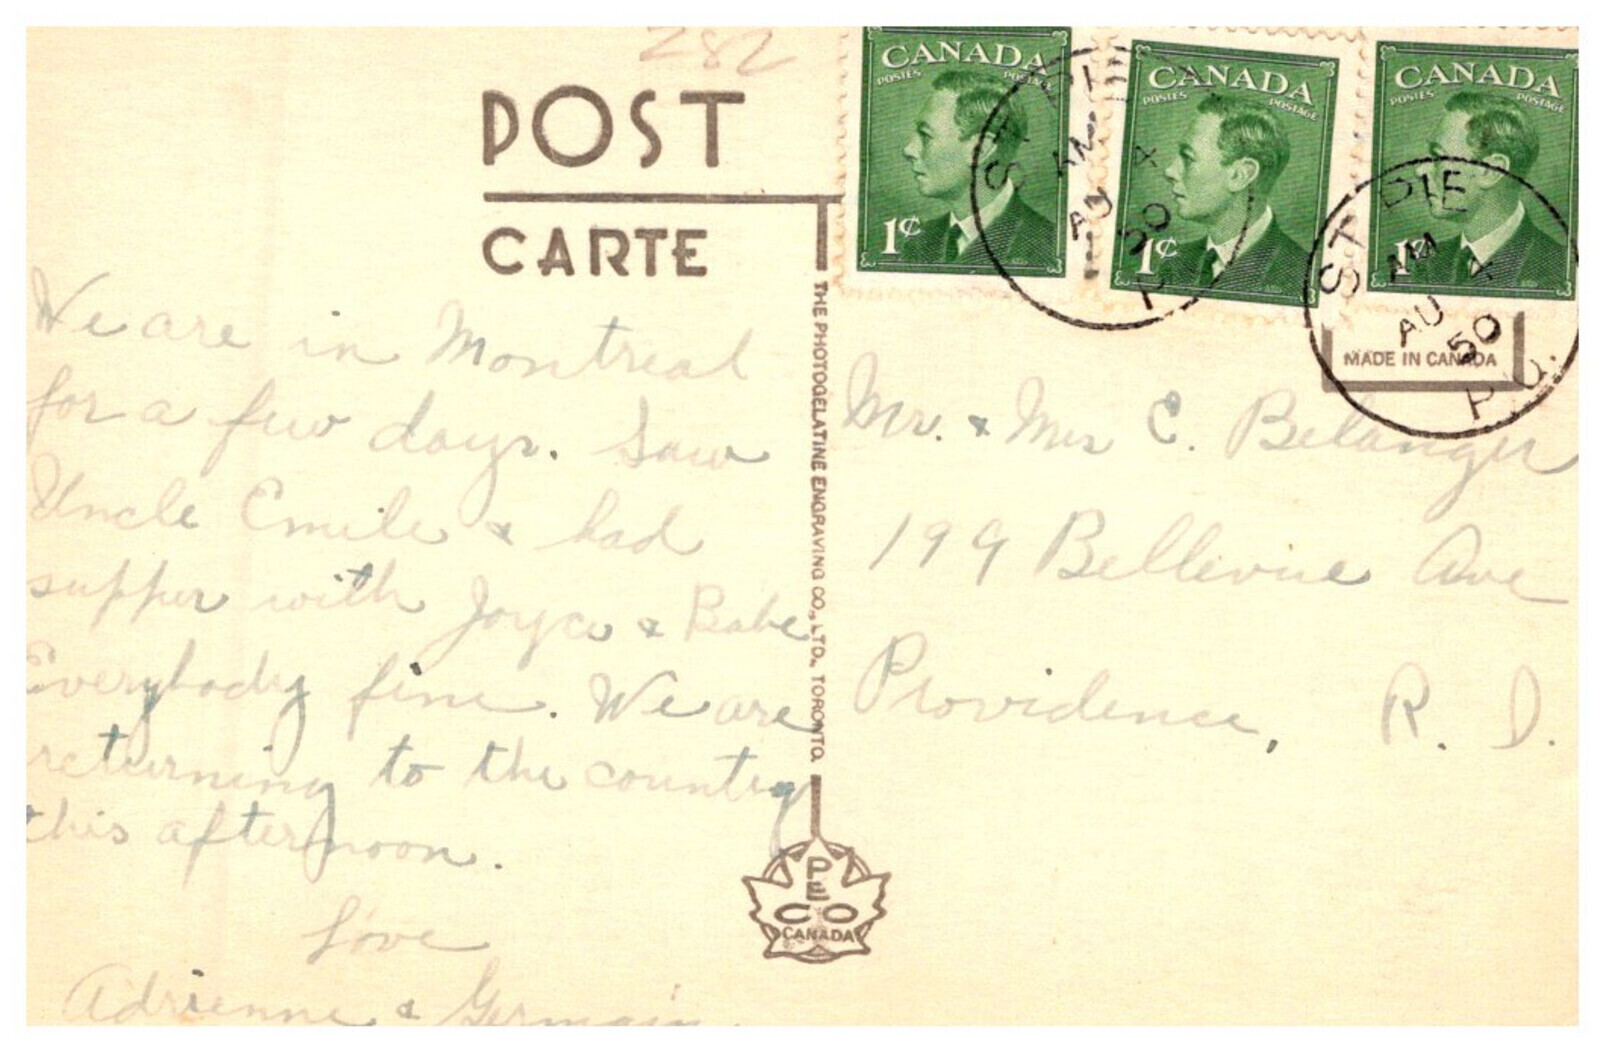 282
POST
CARTE
CANADA
POSTES POSTAGE
1¢
CANADA
POSTES POSTAGE
1¢
CANADA
POSTES POSTAGE
1¢
AM
AU 4
50
ST PIE
AM
AU 4
50
P.Q.
MADE IN CANADA
We are in Montreal
for a few days. Saw
Uncle Emile & had
supper with Joyce & Babe
Everybody fine. We are
returning to the country
this afternoon.
Love
Adrienne & Germain
THE PHOTOGELATINE ENGRAVING CO., LTD., TORONTO.
PECO
CANADA
Mr. & Mrs C. Belanger
199 Bellevue Ave
Providence, R. I.